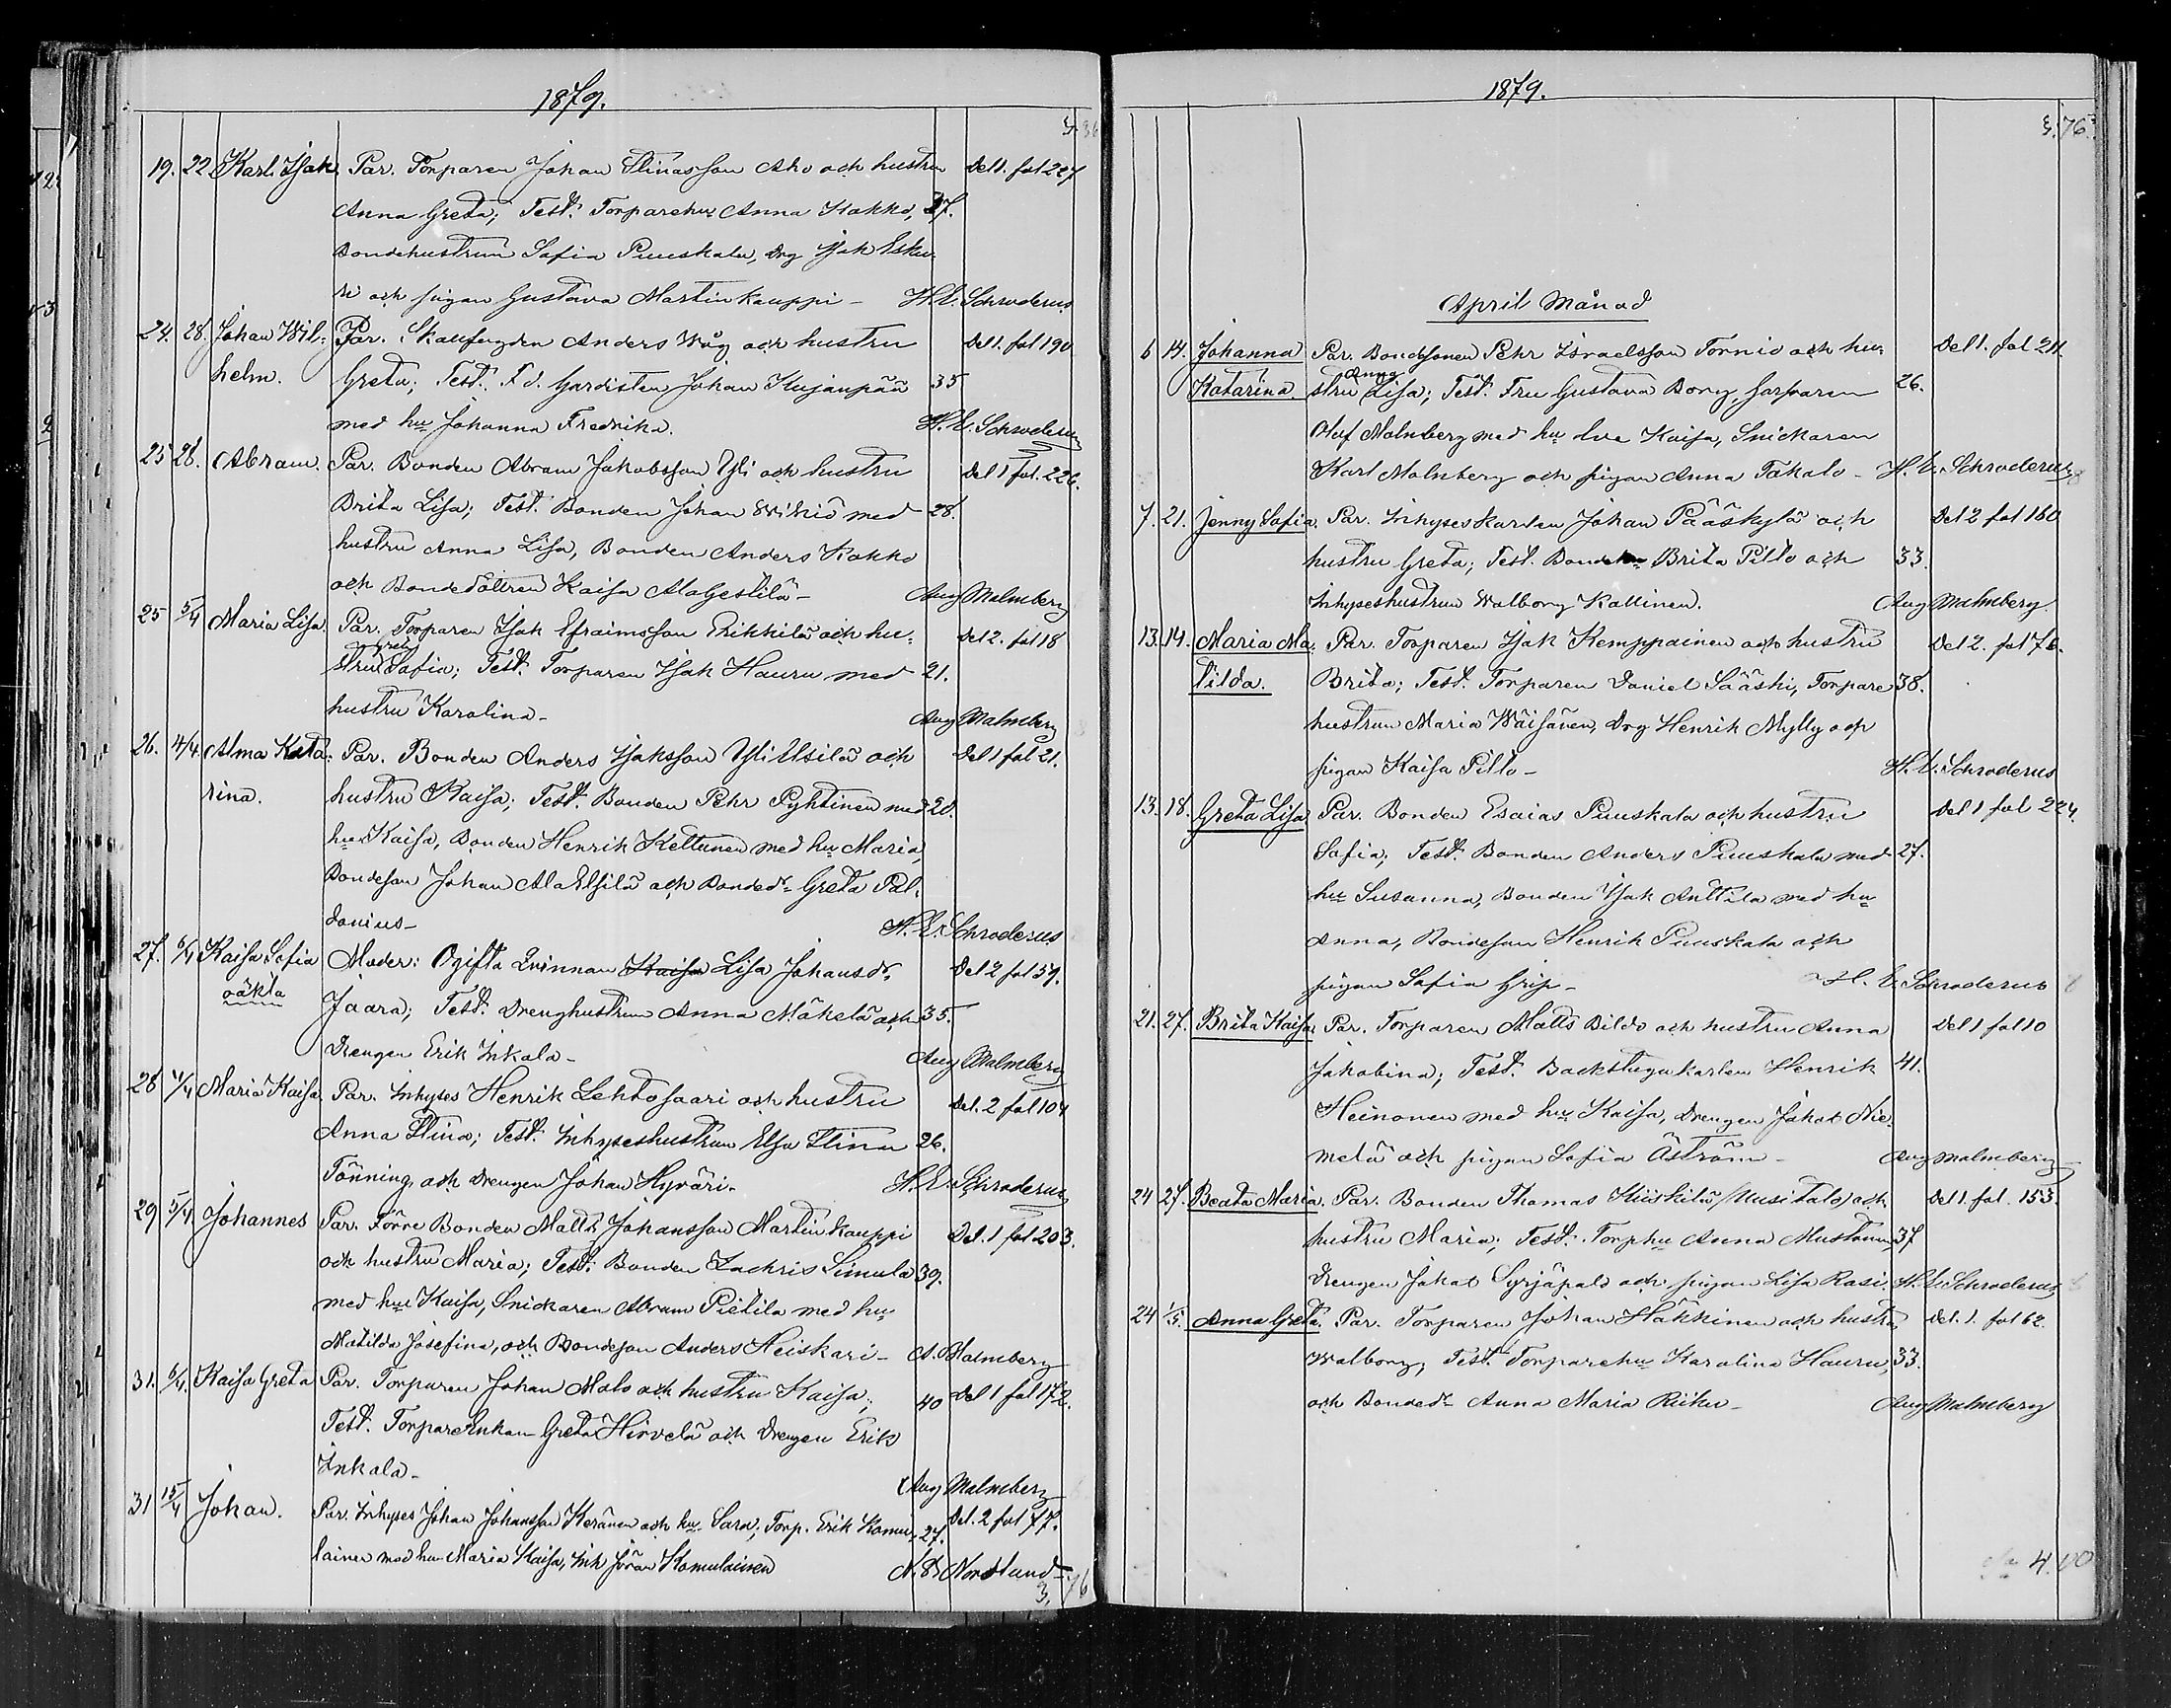 1879.
19. 22 Karl Isak Par. Torparen Johan Stinasson Aho och hustru Del 1. fol 227
Anna Greta; Test. Torparehu Anna Kokko, 37.
Bondehustrun Sofia Puuskala, Drg Isak Esku
ri och pigan Gustava Martinkauppi – H. E. Schroderus
24. 28. Johan Wil- Par. Skallfogden Anders Wåg och hustru Del 1. fol 190
helm. Greta; Test. F d. Gardisten Johan Kujanpää 35
med hu Johanna Fredrika. H. E. Schroderus
25 28. Abram. Par. Bonden Abram Jakobsson Yli och hustru Del 1 fol. 226.
Brita Lisa; Test. Bonden Johan Wikiö med 28.
hustru Anna Lisa, Bonden Anders Kokko
och Bondedottren Kaisa AlaYestilä – Aug Malmberg
25 5/4 Maria Lisa. Par. Torparen Isak Efraimsson Erikkilä och hu- Del 2. fol 18
stru Greta Sofia; Test. Torparen Isak Hauru med 21.
hustru Karolina – Aug Malmberg
26. 4/4. Alma Kata- Par. Bonden Anders Isaksson YliUlsilä och Del 1 fol 21.
rina. hustru Kaisa; Test. Bonden Pehr Pyhtinen med 20.
hu Kaisa, Bonden Henrik Keltunen med hu Maria,
Bondeson Johan AlaUlsilä och Bondedr Greta Pal-
danius – H. E. Schroderus
27. 6/4 Kaisa Sofia Moder: Ogifta Qvinnan Kaisa Lisa Johansdr, Del 2 fol 59.
oäkta Jaara; Test. Drenghustrun Anna Mäkelä och 35.
Drengen Erik Inkala – Aug Malmberg
28 11/4 Maria Kaisa Par. Inhyses Henrik Lehtosaari och hustru Del. 2 fol 104
Anna Stina; Test. Inhyseshustrun Elsa Stina 26.
Tönning och Drengen Johan Hyväri. H. E. Schroderus
29 5/4. Johannes Par. Förre Bonden Matts Johansson Martinkauppi Del. 1 fol 203.
och hustru Maria; Test: Bonden Zachris Simula 39.
med hu Kaisa, Snickaren Abram Pietilä med hu
Matilda Josefina, och Bondeson Anders Heiskari – A. Malmberg
31. 6/4. Kaisa Greta Par. Torparen Johan Malo och hustru Kaisa; 40 Del 1 fol 172.
Test. TorpareEnkan Greta Hirvelä och Drengen Erik
Inkala – Aug Malmberg
31 15/4 Johan. Par. Inhyses Johan Johansson Keränen och hu Sara; Torp. Erik Komu- 27. Del. 2 fol 77.
lainen med hu Maria Kaisa, Inh Jöran Komulainen Nordlund
3, 76
1879.
3. 76.
April Månad
6 14. Johanna Par. Bondesonen Pehr Israelsson Tornio och hu- Del 1. fol 211.
Katarina. stru Anna Lisa; Test. Fru Gustava Borg, Garfvaren 26.
Olof Malmberg med hu Lovisa Kaisa, Snickaren
Karl Malmberg och pigan Anna Takalo – H. E. Schroderus
7. 21. Jenny Sofia. Par. Inhyseskarlen Johan Pääskylä och Del 2 fol 160
hustru Greta; Test. Bondehu Brita Pitto och 33.
Inhyseshustrun Walborg Kallinen. Aug Malmberg.
13. 14. Maria Ma- Par. Torparen Isak Kemppainen och hustru Del 2. fol 76.
tilda. Brita; Test. Torparen Daniel Sääski, Torpare 38.
hustrun Maria Wäisänen, Drg Henrik Mylly och
pigan Kaisa Pitto – H. E. Schroderus
13. 18. Greta Lisa Par. Bonden Esaias Puuskala och hustru Del 1 fol 224.
Sofia; Test. Bonden Anders Puuskala med 27.
hu Susanna, Bonden Isak Anttila med hu
Anna, Bondeson Henrik Puuskala och
pigan Sofia Grip – H. E. Schroderus
21. 27. Brita Kaisa Par. Torparen Matts Bildo och hustru Anna Del 1 fol 10
Jakobina; Test. Backstugukarlen Henrik 41.
Heinonen med hu Kaisa, Drengen Jakob Nie-
melä och pigan Sofia Åström – Aug Malmberg
24 27. Beata Maria. Par. Bonden Thomas Kiiskilä /Uusitalo/ och Del 1. fol. 153.
hustru Maria; Test. Torphu Anna Mustonen, 37
Drengen Jakob Syrjäpalo och pigan Lisa Rasi. H. E. Schroderus
24 1/5. Anna Greta. Par. Torparen Johan Häkkinen och hustru Del. 1. fol 62.
Walborg; Test. Torparehu Karolina Hauru, 33.
och Bondedr Anna Maria Riiku – Aug Malmberg
4.00